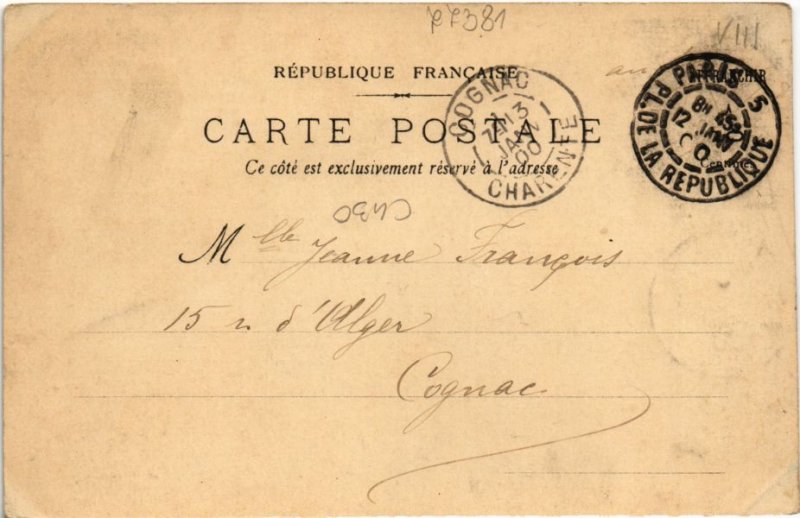 77381
VIII
RÉPUBLIQUE FRANÇAISE
CARTE POSTALE
Ce côté est exclusivement réservé à l'adresse
COGNAC
13
JANV
00
CHARENTE
PARIS 5
12
JANV
00
PL. DE LA REPUBLIQUE
Mlle Jeanne François
15 r. d'Alger
Cognac